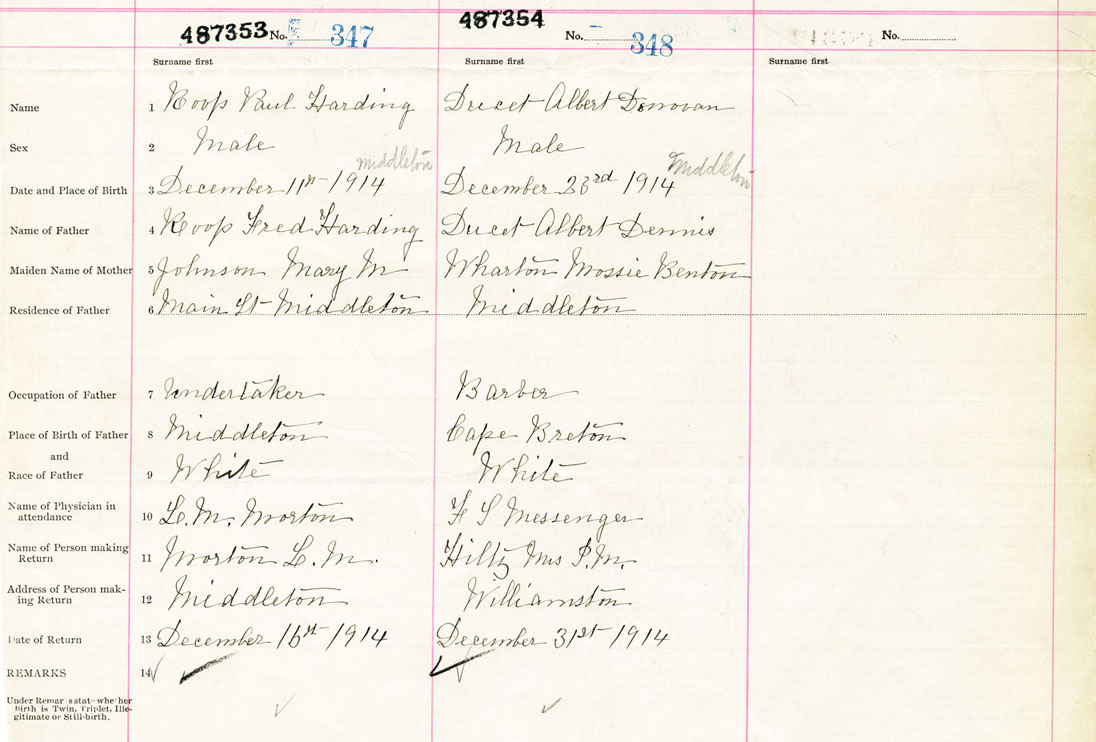 487353 No. 347 487354 No. 348 No.
Surname first Surname first Surname first
Name 1 Roop Paul Harding Ducet Albert Donovan
Sex 2 Male Male
Middleton Middleton
Date and Place of Birth 3 December 11th 1914 December 23rd 1914
Name of Father 4 Roop Fred Harding Ducet Albert Dennis
Maiden Name of Mother 5 Johnson Mary M Wharton Mossie Benton
Residence of Father 6 Main St Middleton Middleton
Occupation of Father 7 Undertaker Barber
Place of Birth of Father 8 Middleton Cape Breton
and
Race of Father 9 White White
Name of Physician in
attendance 10 L. M. Morton F S Messenger
Name of Person making
Return 11 Morton L. M. Hiltz Mrs P. M.
Address of Person mak-
ing Return 12 Middleton Williamston
Date of Return 13 December 16th 1914 December 31st 1914
REMARKS 14
Under Remarks state whether
Birth is Twin, Triplet, Ille-
gitimate or Still-birth.